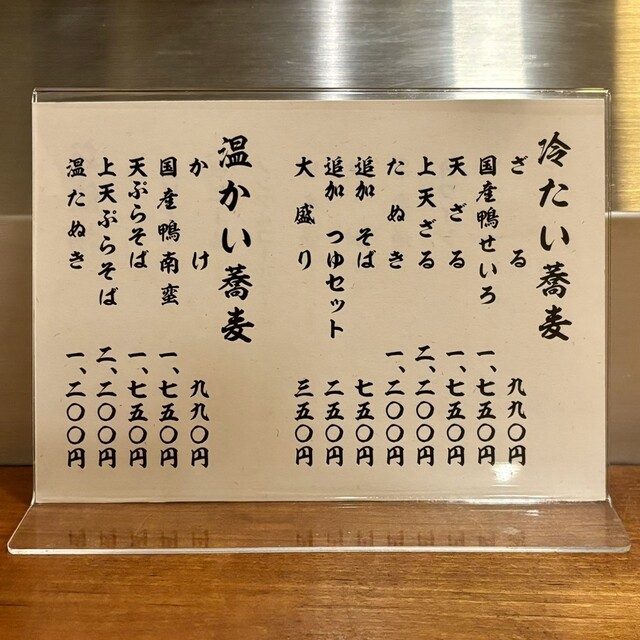 冷たい蕎麦
ざる 九九〇円
国産鴨せいろ 一、七五〇円
天ざる 一、七五〇円
上天ざる 二、二〇〇円
たぬき 一、二〇〇円
追加 そば 七五〇円
追加 つゆセット 二五〇円
大盛り 三五〇円
温かい蕎麦
かけ 九九〇円
国産鴨南蛮 一、七五〇円
天ぷらそば 一、七五〇円
上天ぷらそば 二、二〇〇円
温たぬき 一、二〇〇円